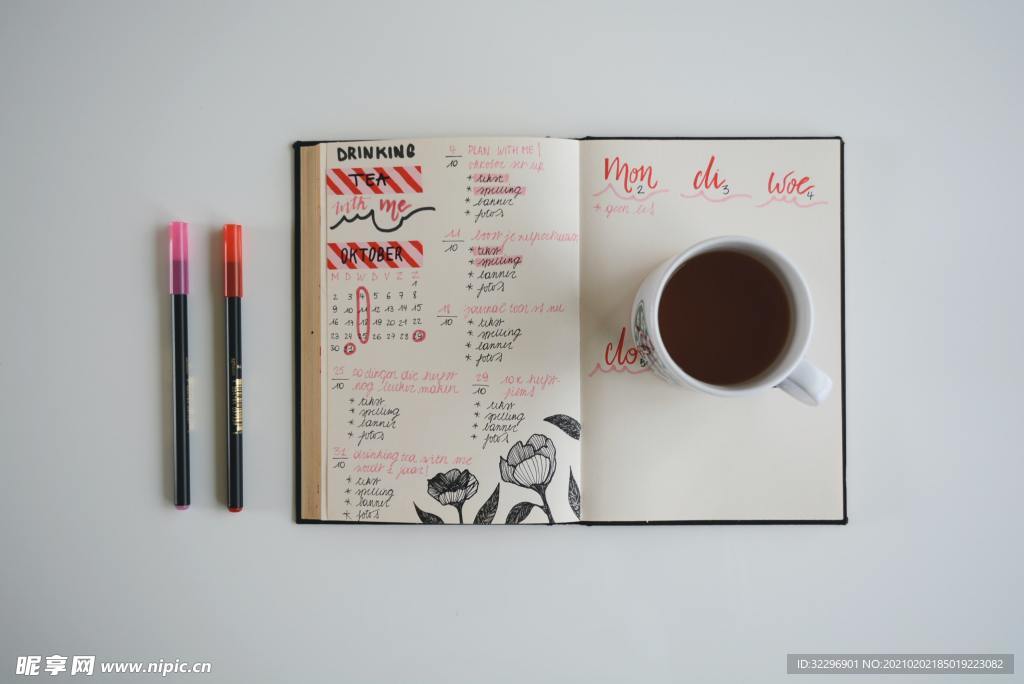 DRINKING
TEA
with me
OKTOBER
M D W D V Z Z
1
2 3 4 5 6 7 8
9 10 11 12 13 14 15
16 17 18 19 20 21 22
23 24 25 26 27 28 29
30 31
4/10 PLAN WITH ME!
oktober set up
* tekst
* spelling
* banner
* foto's
11/10 boost je zelfvertrouwen
* tekst
* spelling
* banner
* foto's
18/10 journal
* tekst
* spelling
* banner
* foto's
25/10 20 dingen die herfst
nog leuker maken
* tekst
* spelling
* banner
* foto's
29/10 10x herfst-
items
* tekst
* spelling
* banner
* foto's
31/10 drinking tea with me
wordt 2 jaar!
* tekst
* spelling
* banner
* foto's
Mon 2
di 3
woe 4
* geen les
do 5
昵享网 www.nipic.cn
ID:32296901 NO:20210202185019223082